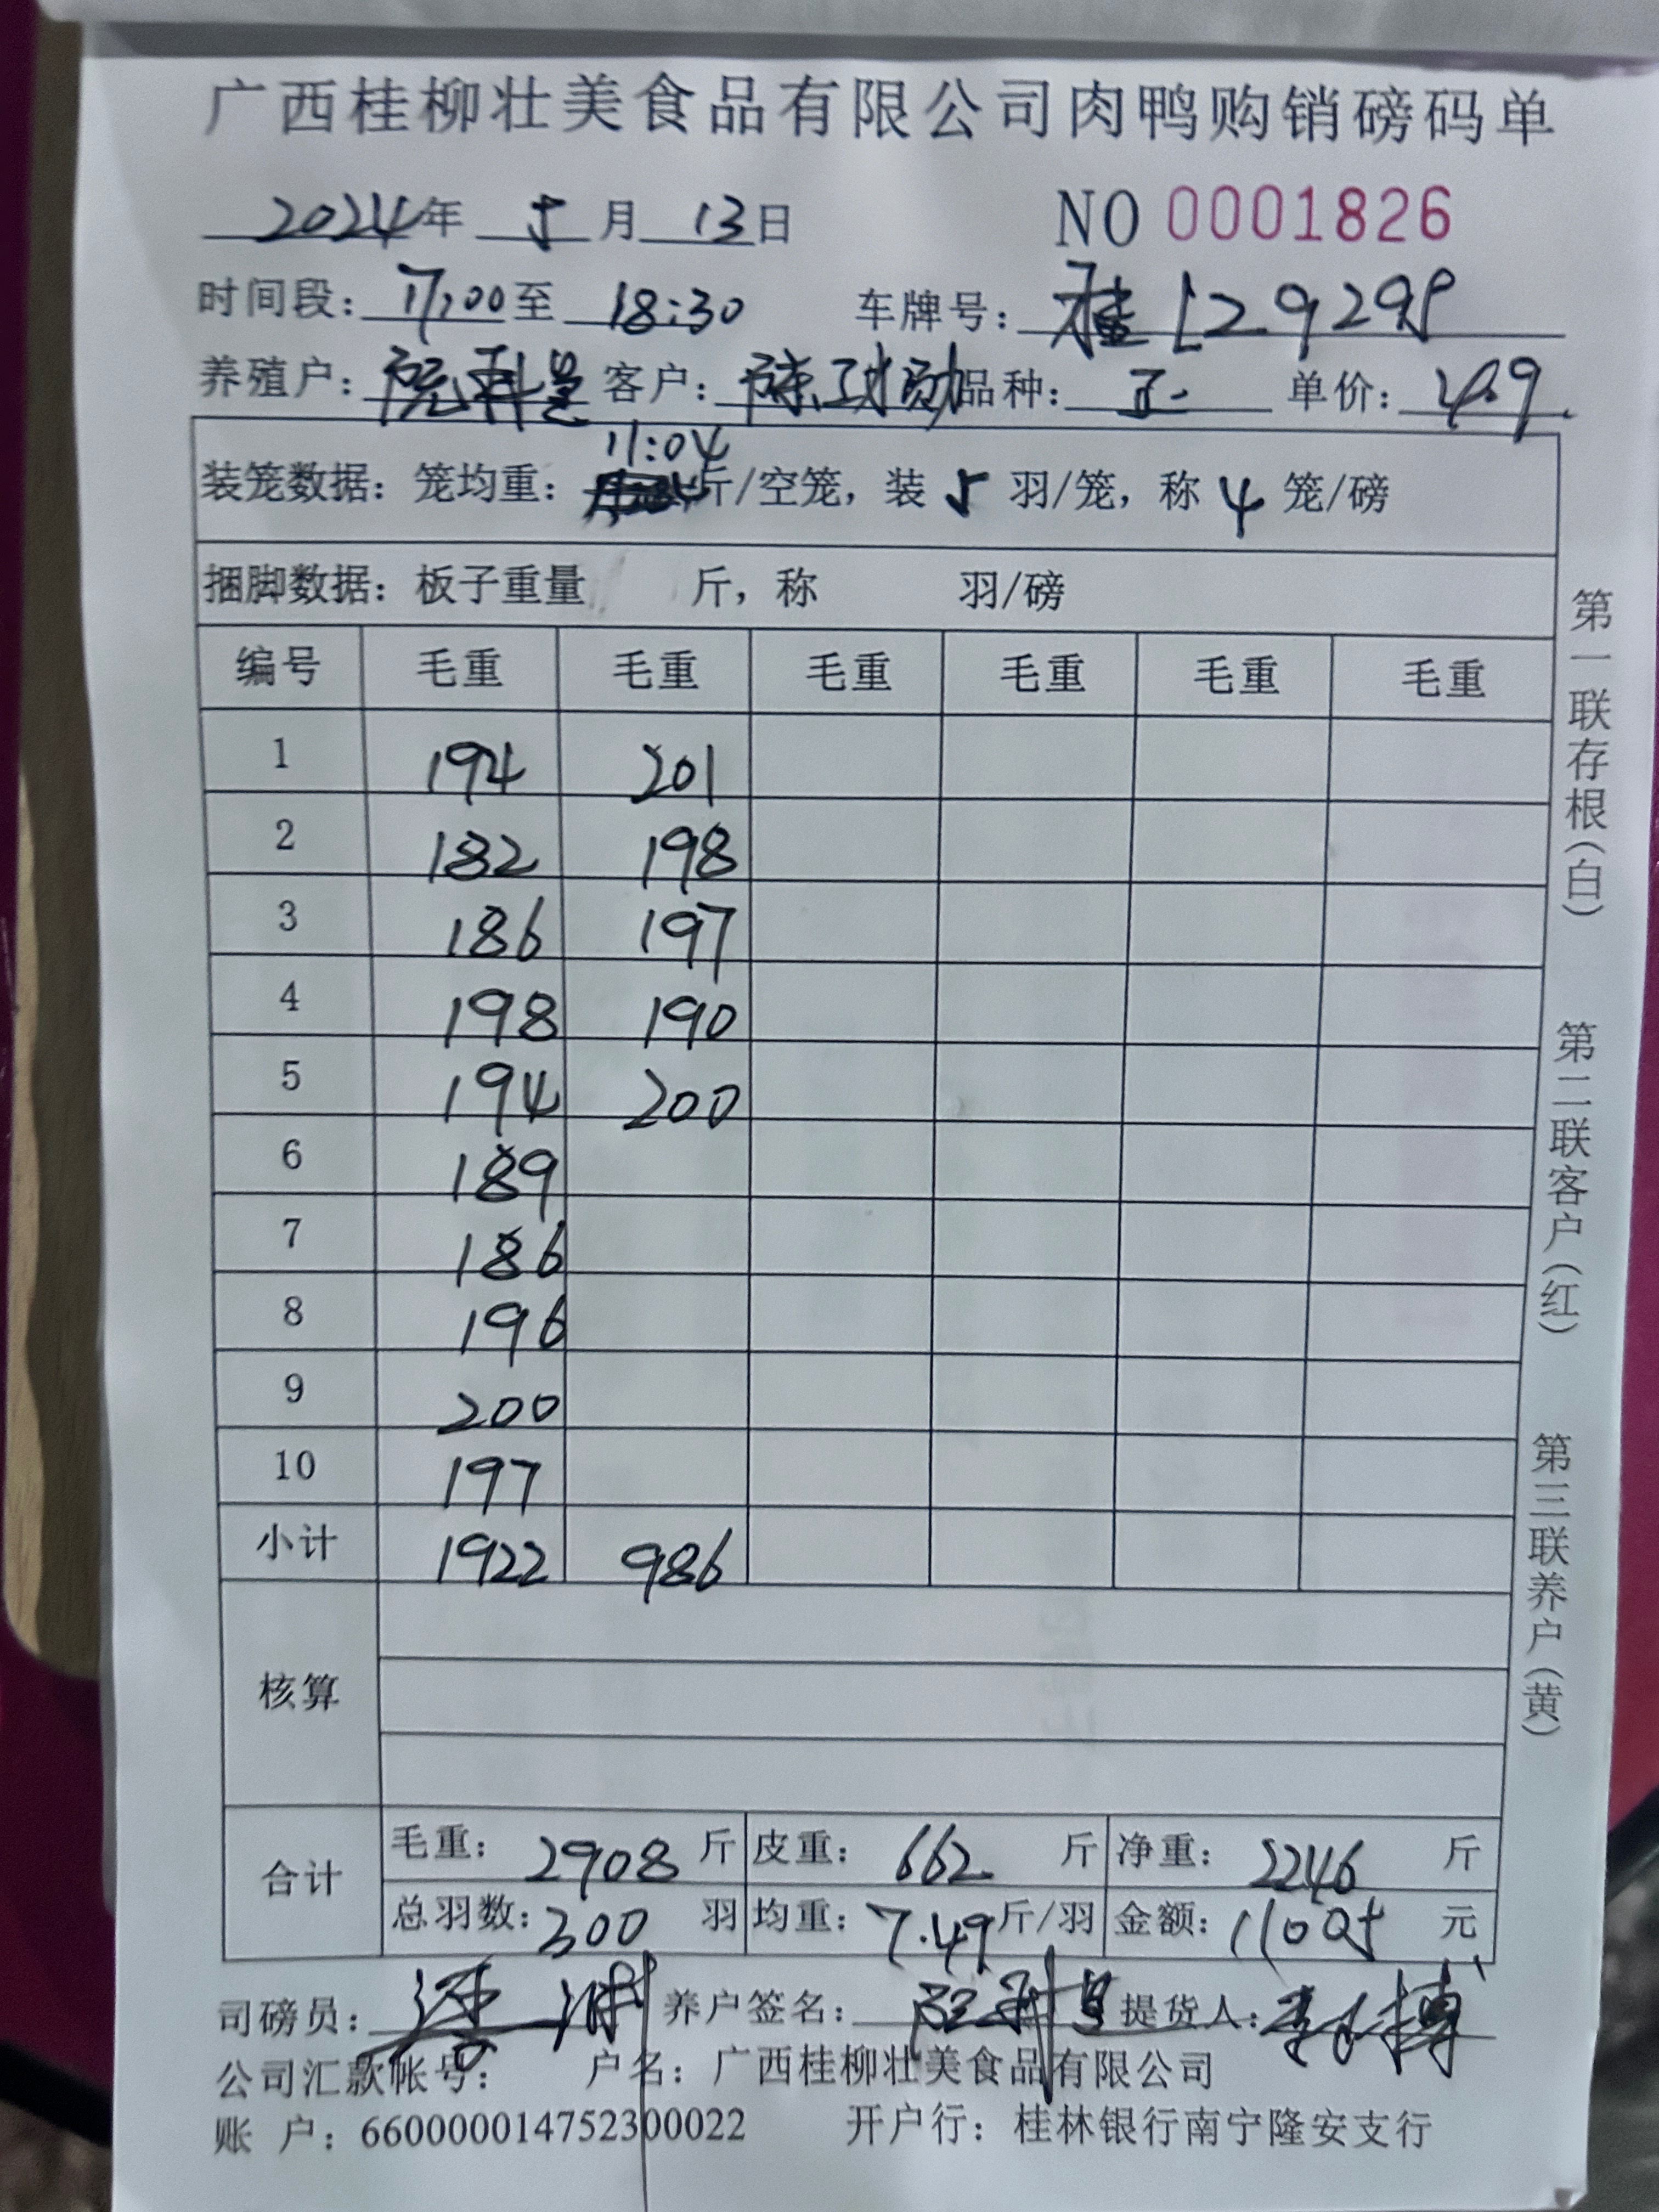 广西桂柳壮美食品有限公司肉鸭购销磅码单
2024年 5月 13日 NO 0001826
时间段：17:00至 18:30 车牌号：桂
养殖户： 客户： 品种： 正 单价：4.9
11:04
装笼数据：笼均重： 斤/空笼，装 5 羽/笼，称 4 笼/磅
捆脚数据：板子重量 斤，称 羽/磅
编号 毛重 毛重 毛重 毛重 毛重 毛重
1 194 201
2 182 198
3 186 197
4 198 190
5 194 200
6 189
7 186
8 196
9 200
10 197
小计 1922 986
核算
合计 毛重：2908 斤 皮重：662 斤 净重：2246 斤
总羽数：300 羽 均重：7.49斤/羽 金额：11005 元
司磅员： 养户签名： 提货人：
公司汇款帐号： 户名：广西桂柳壮美食品有限公司
账 户：660000014752300022 开户行：桂林银行南宁隆安支行
第一联存根(白) 第二联客户(红) 第三联养户(黄)